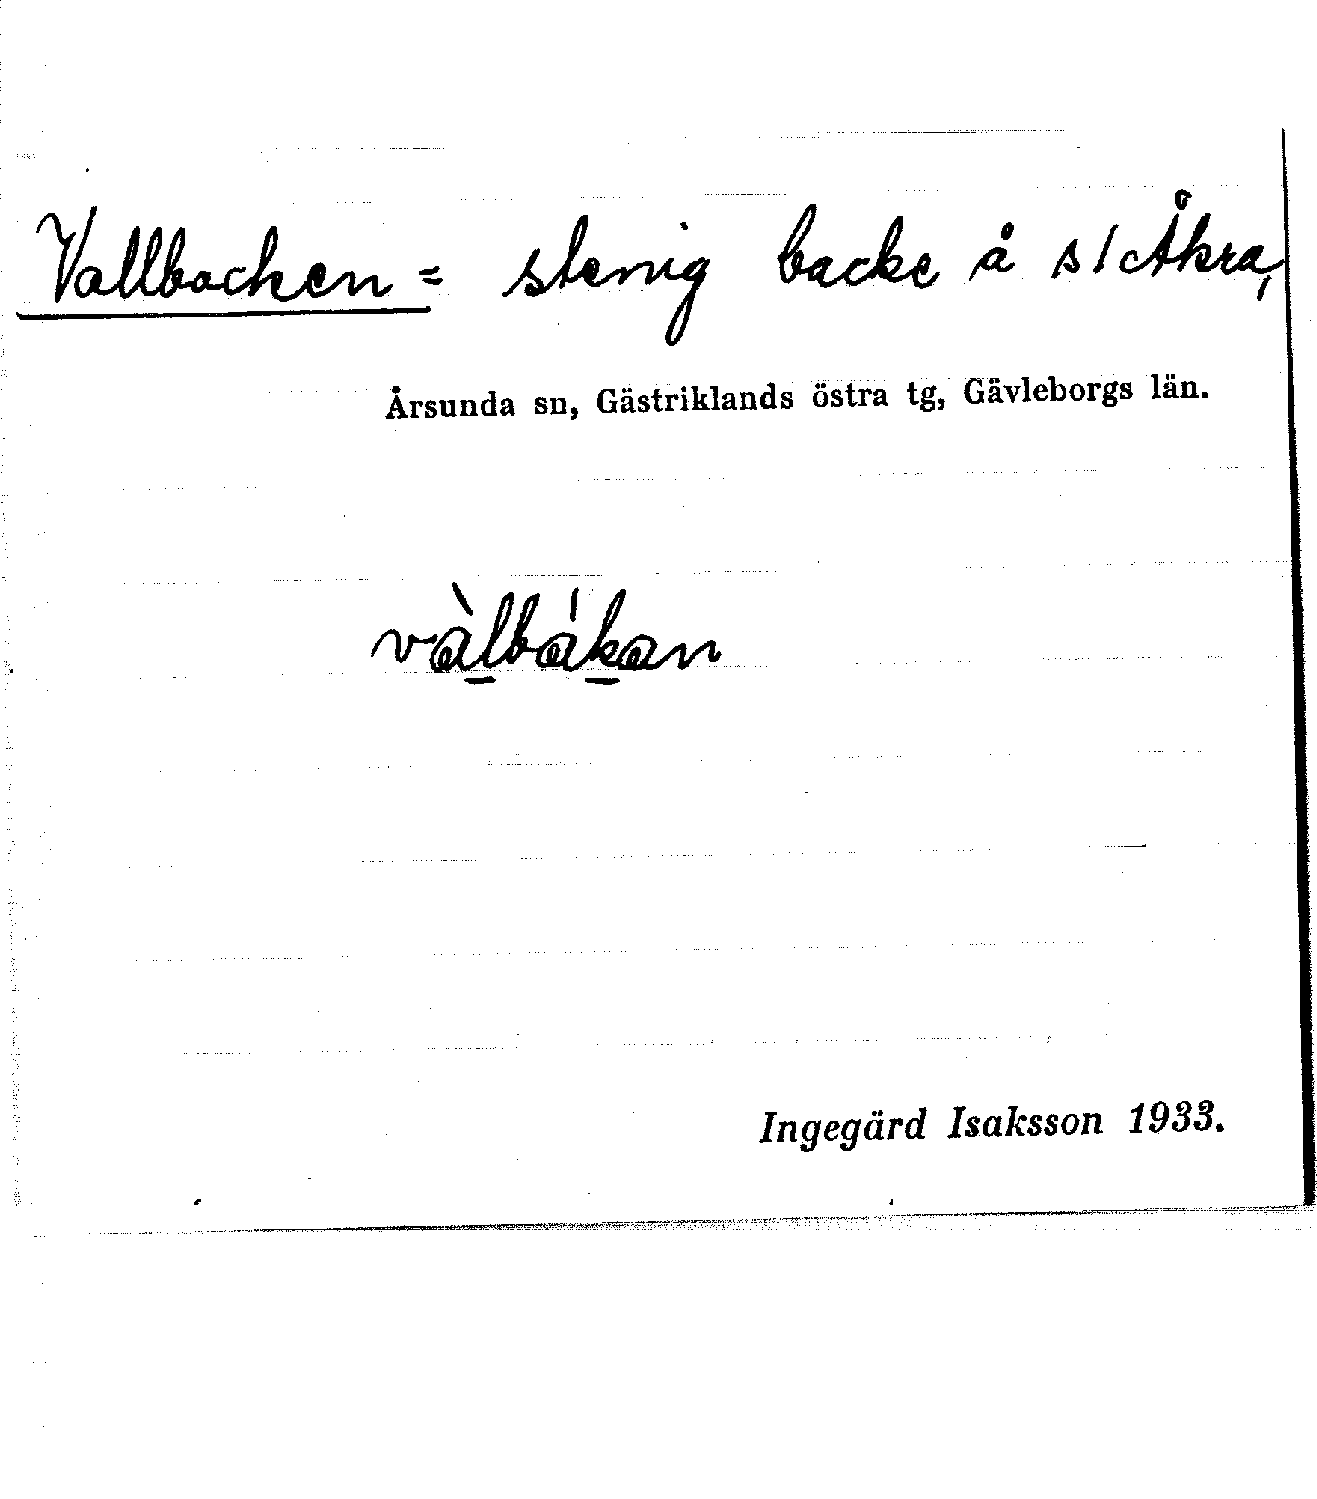 Vallbacken = stenig backe å s/Åkra,
Årsunda sn, Gästriklands östra tg, Gävleborgs län.
vàlbákan
Ingegärd Isaksson 1933.